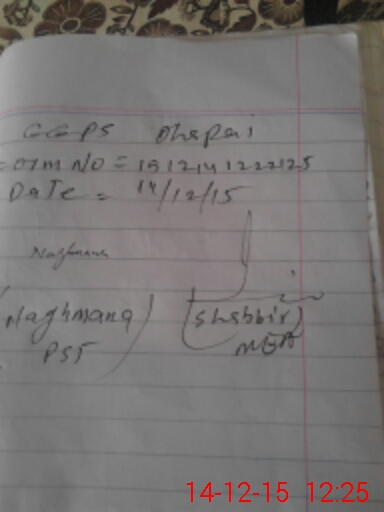 GGPS Dhapai
NO = 151214122125
Date = 14/12/15
Naghmana
(Naghmana) (Shabbir)
PST MEA
14-12-15 12:25